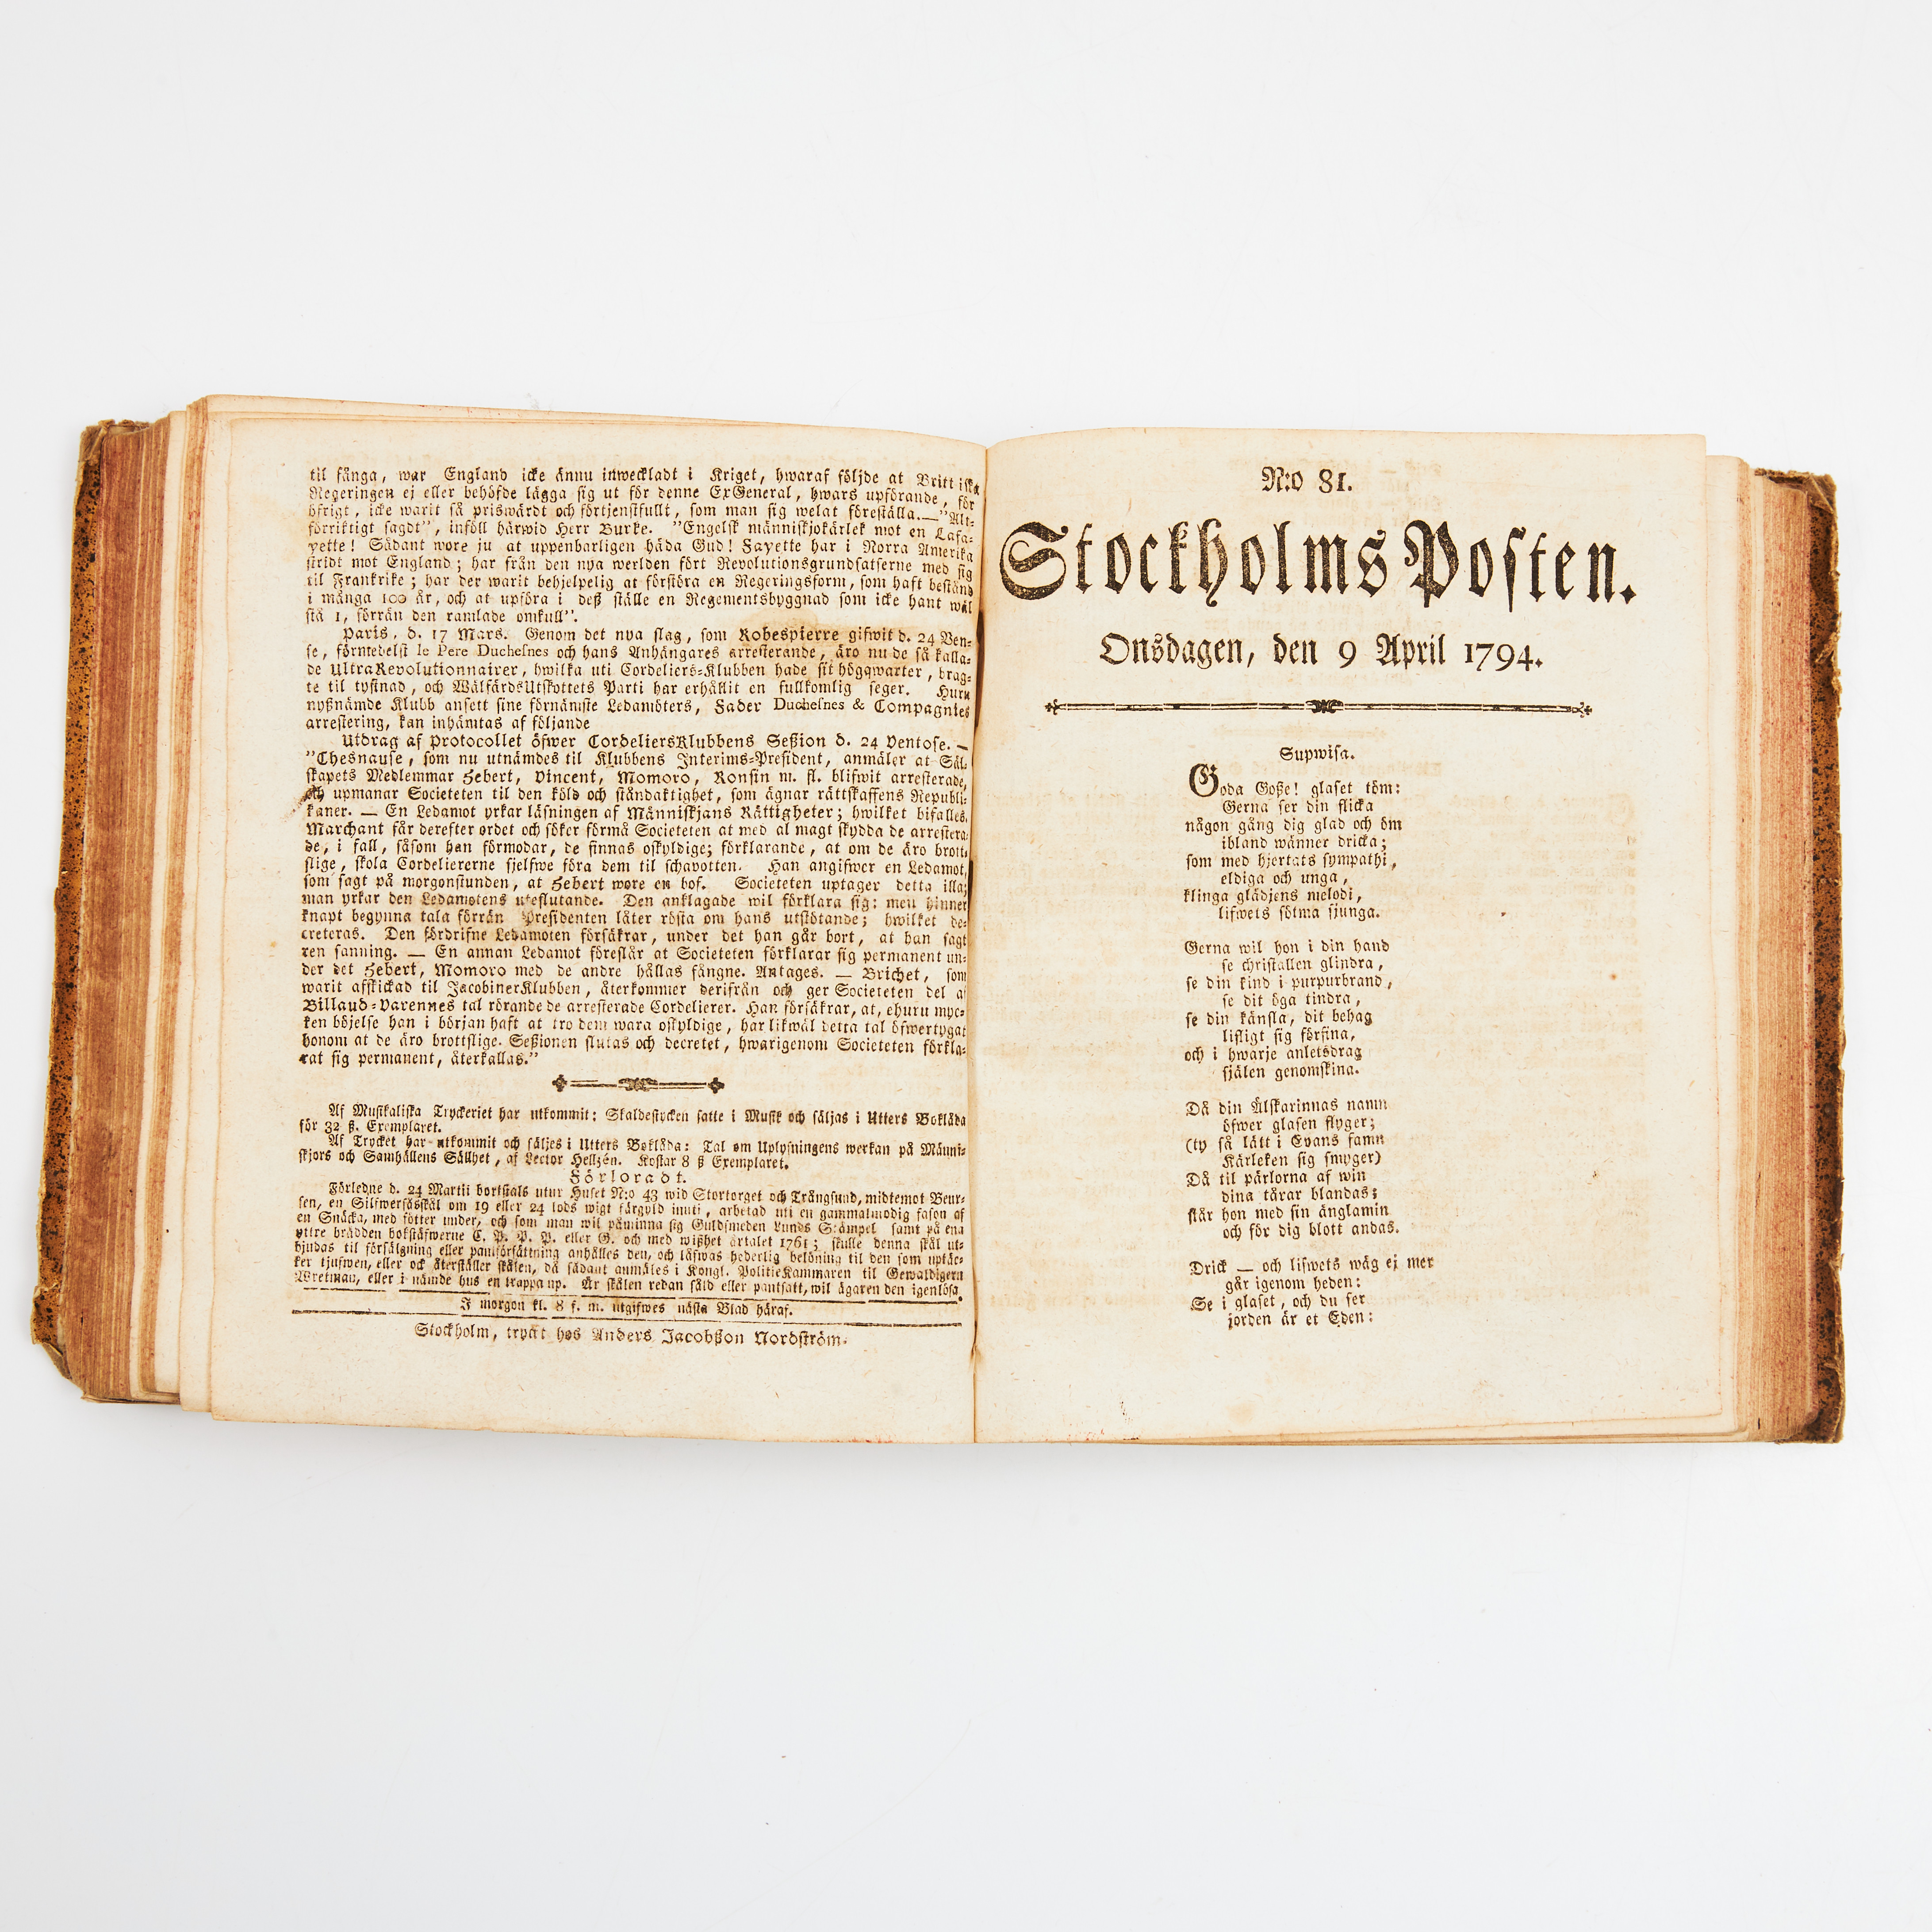 til fånga, war England icke ännu inweckladt i Kriget, hwaraf följde at Brittiska
Regeringen ej eller behöfde lägga sig ut för denne ExGeneral, hwars upförande, för
öfrigt, icke warit så priswärdt och förtjenstfullt, som man sig welat föreställa.—"Alt-
förriktigt sagdt", inföll härwid Herr Burke. "Engelsk människjokärlek mot en Lafa-
yette! Sådant wore ju at uppenbarligen häda Gud! Fayette har i Norra Amerika
stridt mot England; har från den nya werlden fört Revolutionsgrundsatserne med sig
til Frankrike; har der warit behjelpelig at förstöra en Regeringsform, som haft bestånd
i många 100 år, och at upföra i deß ställe en Regementsbyggnad som icke hant wäl
stå 1, förrän den ramlade omkull".
Paris, d. 17 Mars. Genom det nya slag, som Robespierre gifwit d. 24 Ven-
se, förmedelst le Pere Duchesnes och hans Anhängares arresterande, äro nu de så kalla-
de UltraRevolutionnairer, hwilka uti Cordeliers-Klubben hade sit högqwarter, brag-
te til tystnad, och WälfärdsUtskottets Parti har erhållit en fullkomlig seger. Huru
nyßnämde Klubb ansett sine förnämste Ledamöters, Fader Duchesnes & Compagnies
arrestering, kan inhämtas af följande
Utdrag af Protocollet öfwer CordeliersKlubbens Seßion d. 24 Ventose. —
"Chesnause, som nu utnämdes til Klubbens Interims-President, anmäler at Säl-
skapets Medlemmar Hebert, Vincent, Momoro, Ronsin m. fl. blifwit arresterade,
och upmanar Societeten til den köld och ståndaktighet, som ägnar rättskaffens Republi-
kaner. — En Ledamot yrkar läsningen af Människjans Rättigheter; hwilket bifalles.
Marchant får derefter ordet och söker förmå Societeten at med al magt skydda de arrestera-
de, i fall, såsom han förmodar, de finnas oskyldige; förklarande, at om de äro brott-
slige, skola Cordeliererne sjelfwe föra dem til schavotten. Han angifwer en Ledamot,
som sagt på morgonstunden, at Hebert wore en bof. Societeten uptager detta illa;
man yrkar den Ledamotens uteslutande. Den anklagade wil förklara sig: men hinner
knapt begynna tala förrän Presidenten låter rösta om hans utstötande; hwilket de-
creteras. Den fördrifne Ledamoten försäkrar, under det han går bort, at han sagt
ren sanning. — En annan Ledamot föreslår at Societeten förklarar sig permanent un-
der det Hebert, Momoro med de andre hållas fångne. Antages. — Brichet, som
warit afskickad til JacobinerKlubben, återkommer derifrån och ger Societeten del af
Billaud-Varennes tal rörande de arresterade Cordelierer. Han försäkrar, at, ehuru myc-
ken böjelse han i början haft at tro dem wara oskyldige, har likwäl detta tal öfwertygat
honom at de äro brottslige. Seßionen slutas och decretet, hwarigenom Societeten förkla-
rat sig permanent, återkallas."
Af Musikaliska Tryckeriet har utkommit: Skaldestycken satte i Musik och säljas i Utters Boklåda
för 32 ß. Exemplaret.
Af Trycket har utkommit och säljes i Utters Boklåda: Tal om Uplysningens werkan på Männi-
skjors och Samhällens Sällhet, af Lector Hellzén. Kostar 8 ß Exemplaret.
Förloradt.
Förledne d. 24 Martii bortstals utur Huset N:o 43 wid Stortorget och Trångsund, midtemot Beur-
sen, en Silfwersåsskål om 19 eller 24 lods wigt förgyld inuti, arbetad uti en gammalmodig fason af
en Snäcka, med fötter under, och som man wil påminna sig Guldsmeden Lunds Stämpel samt på ena
yttre brädden bokstäfwerne C. P. P. P. eller G. och med wißhet årtalet 1761; skulle denna skål ut-
bjudas til försälgning eller pantförsättning anhålles den, och lofwas hederlig belöning til den som uptäc-
ker tjufwen, eller ock återställer skålen, då sådant anmäles i Kongl. PolitieKammaren til Gewaldigern
Wretman, eller i nämde hus en trappa up. Är skålen redan såld eller pantsatt, wil ägaren den igenlösa.
I morgon kl. 8 f. m. utgifwes nästa Blad häraf.
Stockholm, tryckt hos Anders Jacobßon Nordström.
N:o 81.
Stockholms Posten.
Onsdagen, den 9 April 1794.
Supwisa.
Goda Goße! glaset töm:
Gerna ser din flicka
någon gång dig glad och öm
ibland wänner dricka;
som med hjertats sympathi,
eldiga och unga,
klinga glädjens melodi,
lifwets sötma sjunga.
Gerna wil hon i din hand
se christallen glindra,
se din kind i purpurbrand,
se dit öga tindra,
se din känsla, dit behag
lifligt sig förfina,
och i hwarje anletsdrag
själen genomskina.
Då din Älskarinnas namn
öfwer glasen flyger;
(ty så lätt i Evans famn
Kärleken sig smyger)
Då til pärlorna af win
dina tårar blandas;
står hon med sin änglamin
och för dig blott andas.
Drick — och lifwets wäg ej mer
går igenom heden:
Se i glaset, och du ser
jorden är et Eden: